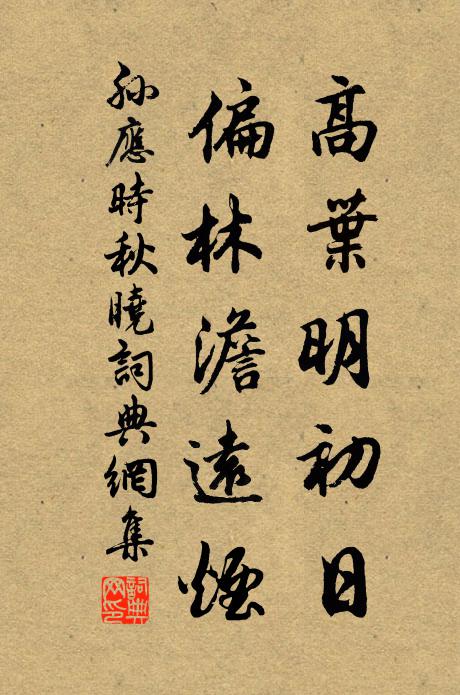 高葉明初日
偏林澹遠煙
孙應時秋曉詞典網集
詞典网印